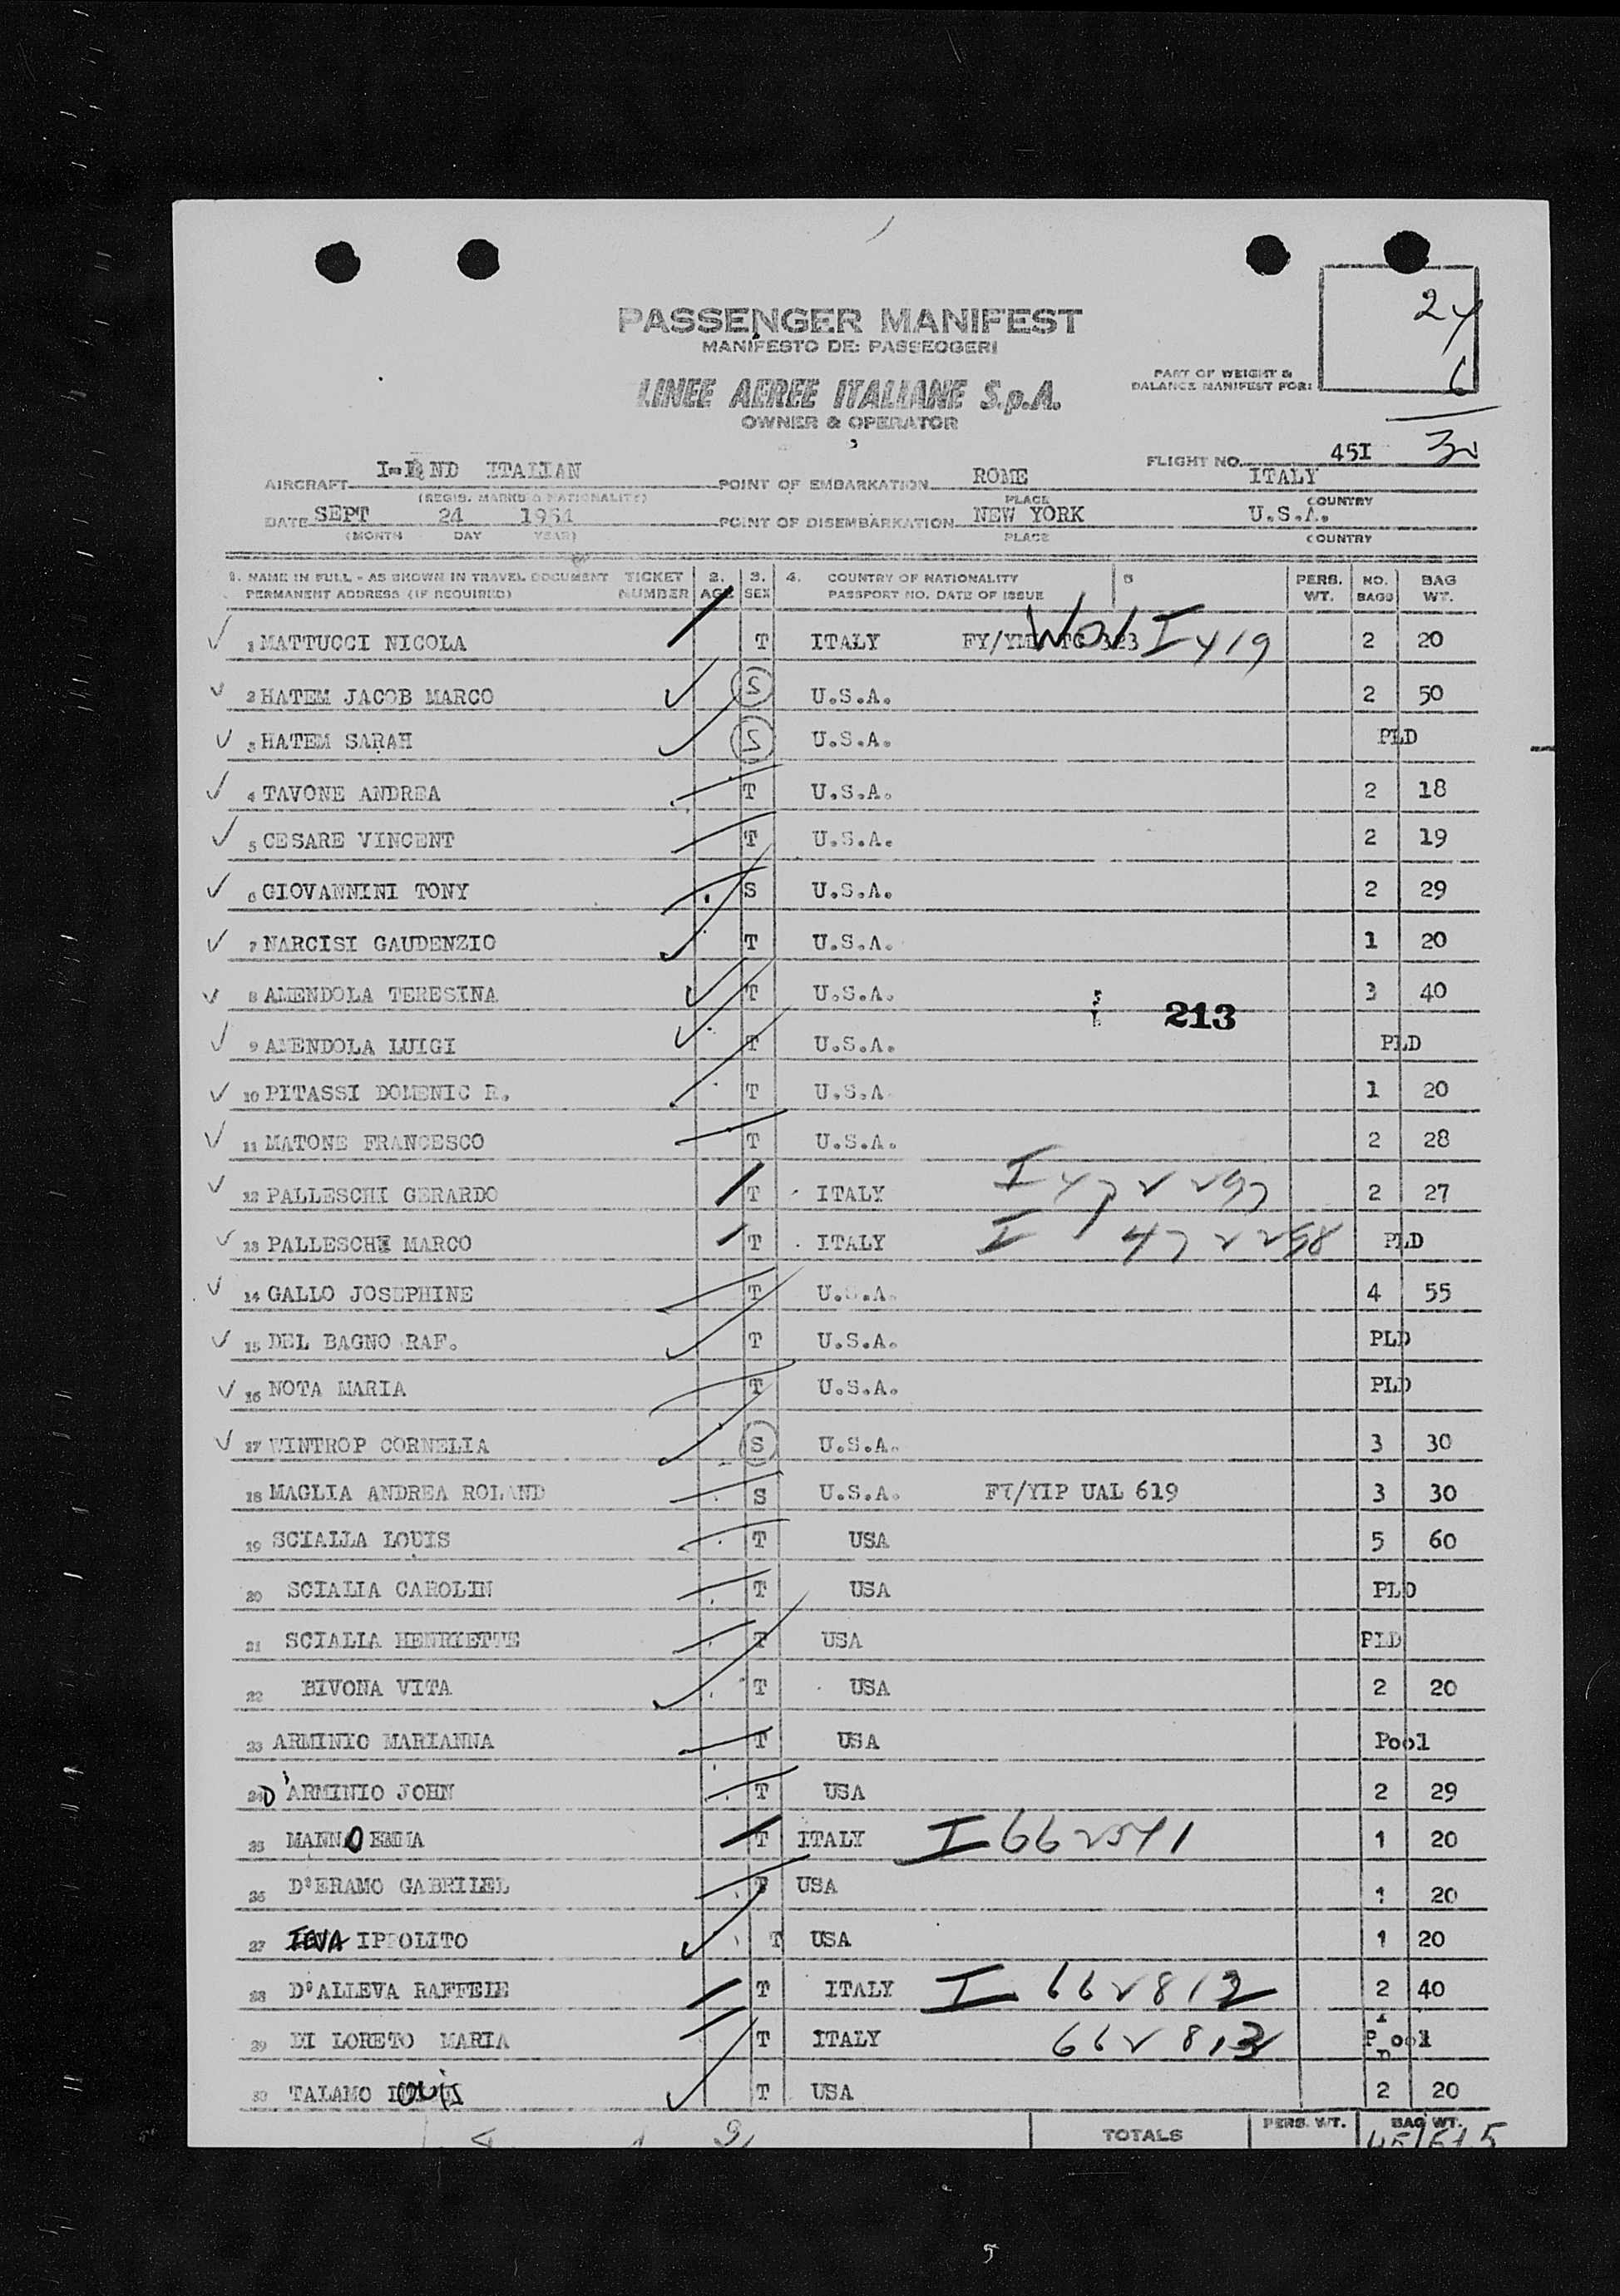 24
6
PASSENGER MANIFEST
MANIFESTO DEI PASSEGGERI
PART OF WEIGHT &
BALANCE MANIFEST FOR:
LINEE AEREE ITALIANE S.p.A.
OWNER & OPERATOR
FLIGHT NO. 45I
AIRCRAFT ND ITALIAN POINT OF EMBARKATION ROME ITALY
(REGIS. MARKS & NATIONALITY) PLACE COUNTRY
DATE SEPT 24 1954 POINT OF DISEMBARKATION NEW YORK U.S.A.
(MONTH DAY YEAR) PLACE COUNTRY
1. NAME IN FULL - AS SHOWN IN TRAVEL DOCUMENT TICKET 2. 3. 4. COUNTRY OF NATIONALITY 5 PERS. NO. BAG
PERMANENT ADDRESS (IF REQUIRED) NUMBER AGE SEX PASSPORT NO. DATE OF ISSUE WT. BAGS WT.
1 MATTUCCI NICOLA T ITALY 2 20
2 HATEM JACOB MARCO S U.S.A. 2 50
3 HATEM SARAH S U.S.A. PLD
4 TAVONE ANDREA T U.S.A. 2 18
5 CESARE VINCENT T U.S.A. 2 19
6 GIOVANNINI TONY S U.S.A. 2 29
7 NARCISI GAUDENZIO T U.S.A. 1 20
8 AMENDOLA TERESINA T U.S.A. 3 40
213
9 AMENDOLA LUIGI T U.S.A. PLD
10 PITASSI DOMENIC R. T U.S.A. 1 20
11 MATONE FRANCESCO T U.S.A. 2 28
12 PALLESCHI GERARDO T ITALY I 2 27
13 PALLESCHI MARCO T ITALY I PLD
14 GALLO JOSEPHINE T U.S.A. 4 55
15 DEL BAGNO RAF. T U.S.A. PLD
16 NOTA MARIA T U.S.A. PLD
17 WINTROP CORNELIA S U.S.A. 3 30
18 MAGLIA ANDREA ROLAND S U.S.A. FY/YIP UAL 619 3 30
19 SCIALLA LOUIS T USA 5 60
20 SCIALIA CAROLIN T USA PLD
21 SCIALIA HENRIETTE T USA PLD
22 BIVONA VITA T USA 2 20
23 ARMINIO MARIANNA T USA Pool
24 D'ARMINIO JOHN T USA 2 29
25 MANNO EMMA T ITALY I 662541 1 20
26 D'ERAMO GABRILEL T USA 1 20
27 IPPOLITO T USA 1 20
28 D'ALLEVA RAFFEIE T ITALY I 662812 2 40
29 DI LORETO MARIA T ITALY 662813 Pool
30 TALAMO LOUIS T USA 2 20
TOTALS PERS. WT. BAG WT.
5